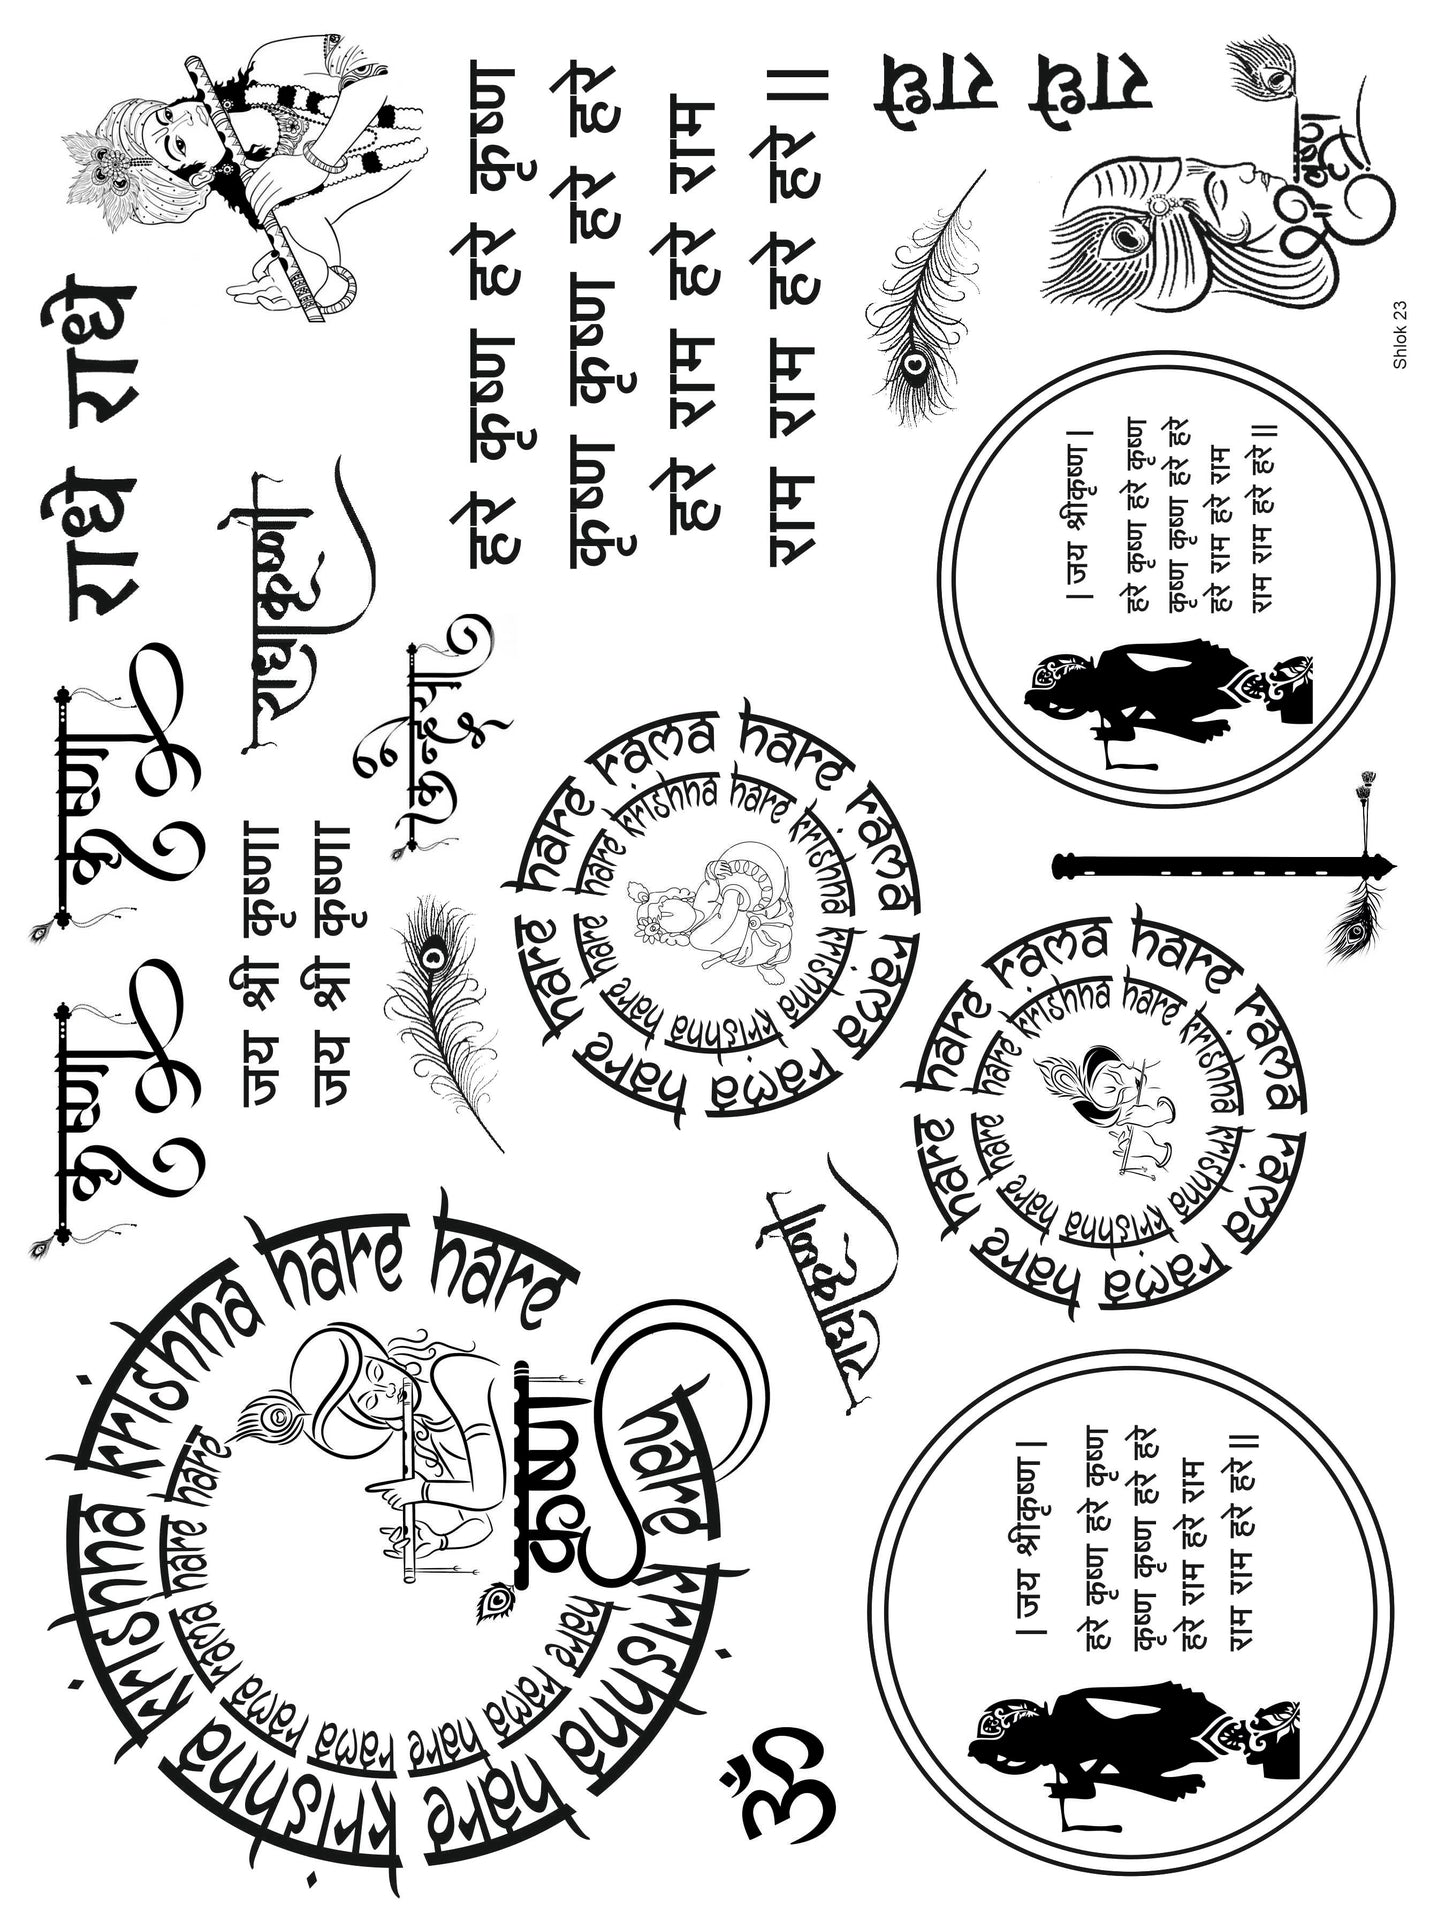 राधे राधे
कृष्णा
कृष्णा
राधाकृष्णा
जय श्री कृष्णा
जय श्री कृष्णा
कन्हैया
हरे कृष्ण हरे कृष्ण
कृष्ण कृष्ण हरे हरे
हरे राम हरे राम
राम राम हरे हरे ||
राधे
राधे
श्री कृष्ण
hare krishna hare krishna krishna krishna hare hare
hare rama hare rama rama rama hare hare
कृष्णा
hare rama hare rama rama rama hare hare
hare krishna hare krishna krishna krishna hare hare
राधाकृष्णा
hare rama hare rama rama rama hare hare
hare krishna hare krishna krishna krishna hare hare
ॐ
| जय श्रीकृष्ण |
हरे कृष्ण हरे कृष्ण
कृष्ण कृष्ण हरे हरे
हरे राम हरे राम
राम राम हरे हरे ||
| जय श्रीकृष्ण |
हरे कृष्ण हरे कृष्ण
कृष्ण कृष्ण हरे हरे
हरे राम हरे राम
राम राम हरे हरे ||
Shlok 23